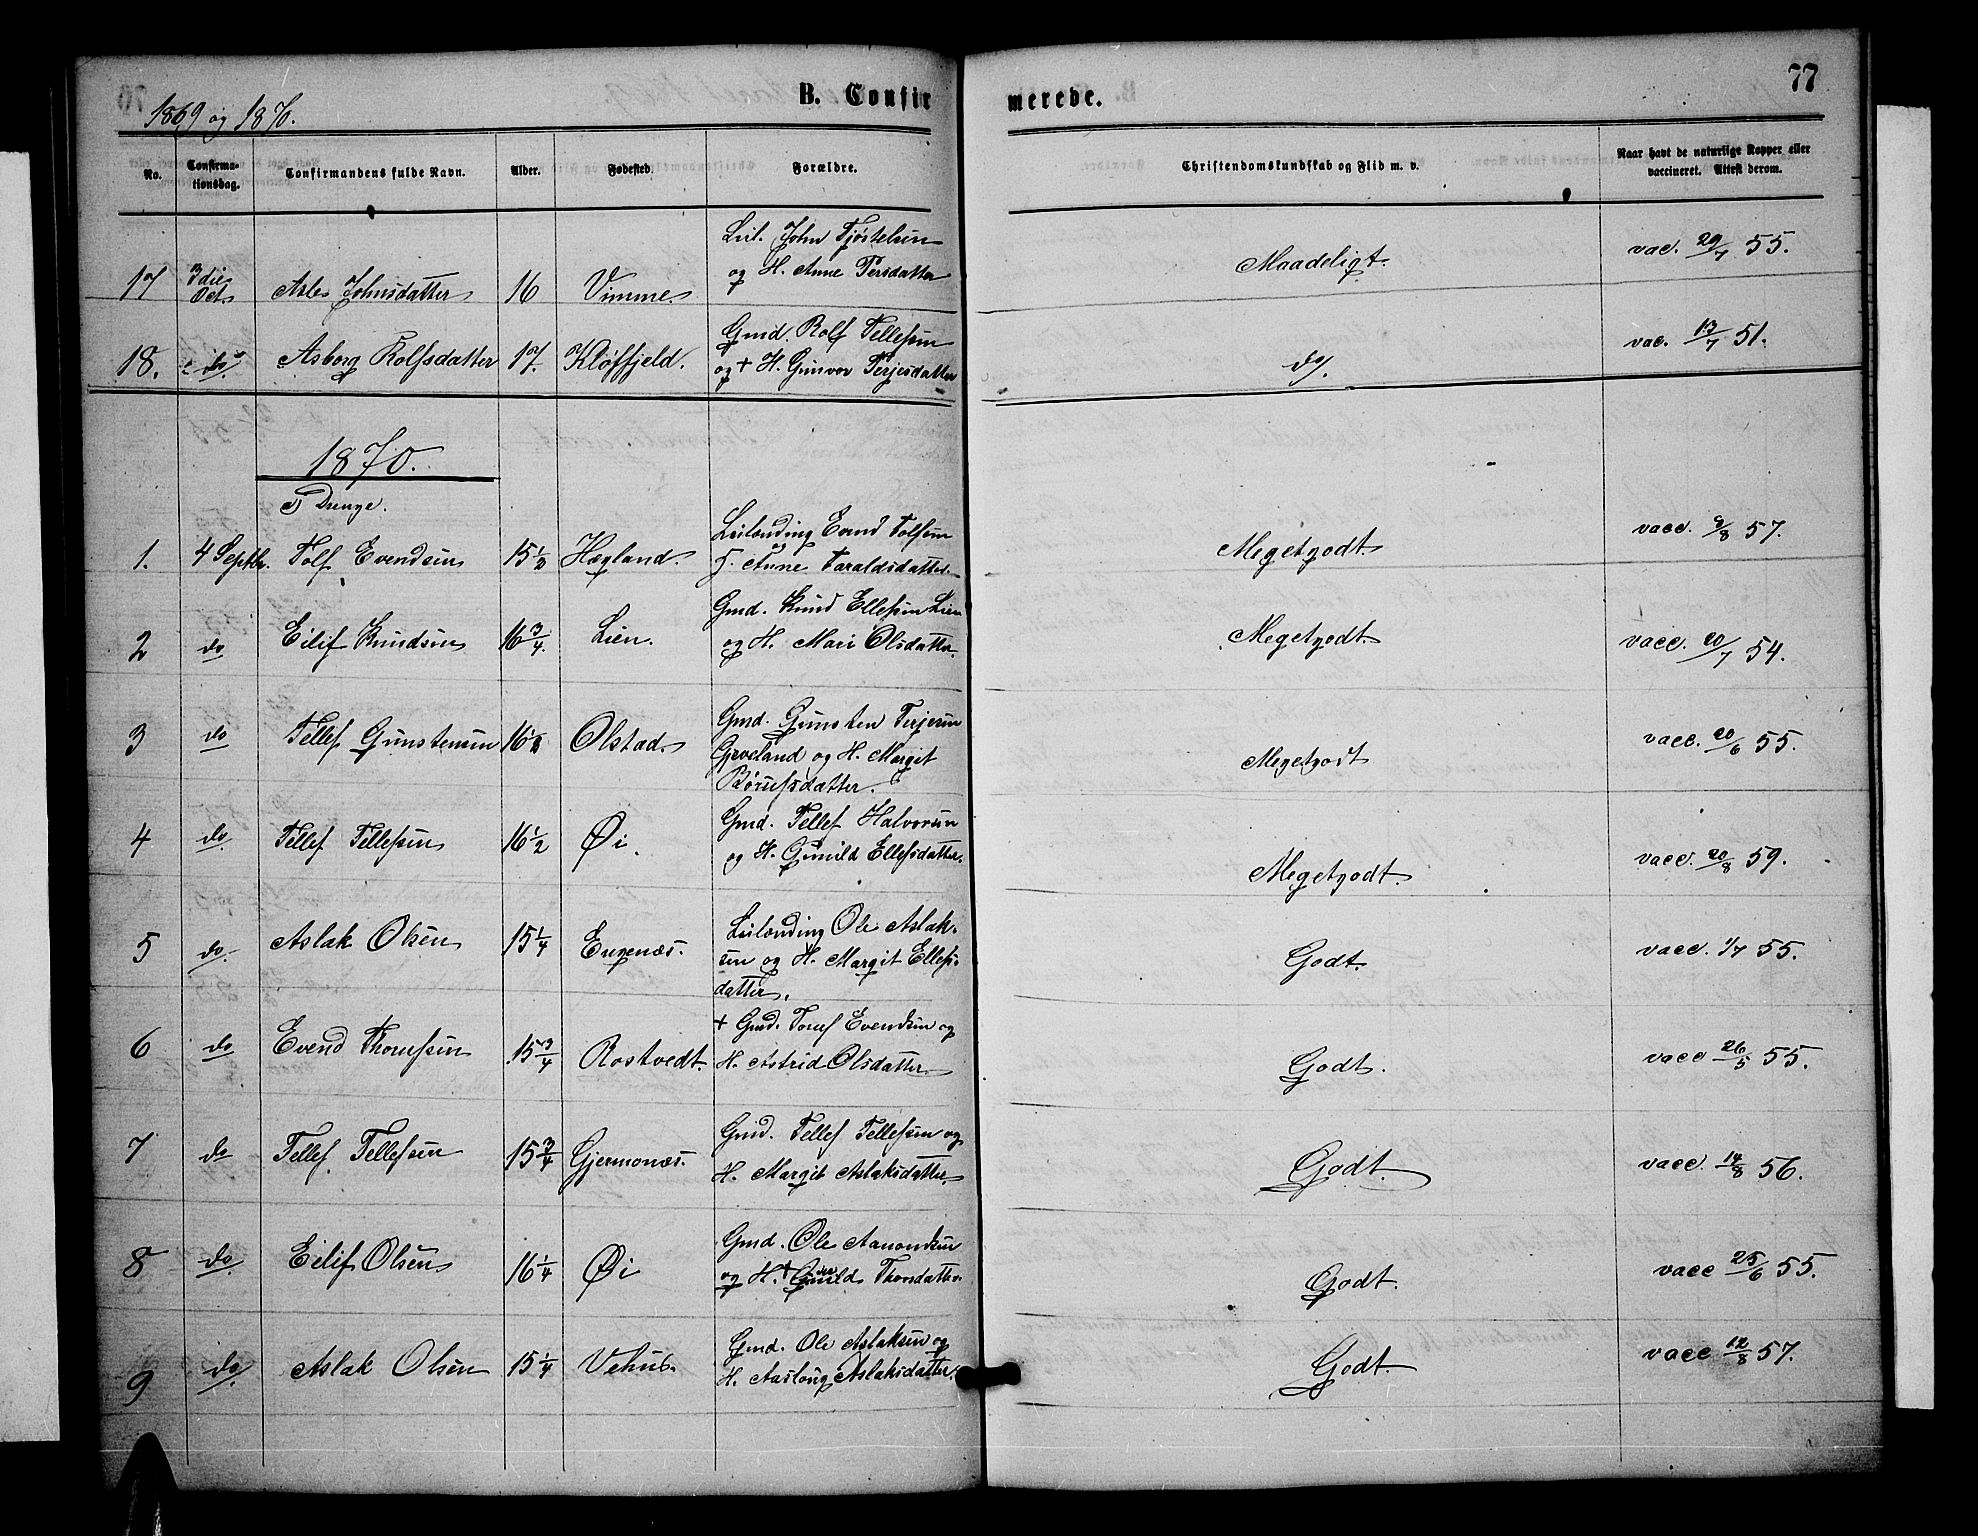 1869 og 1870.
B. Confirmerede.
77
No.
Confirma-
tionsdag.
Confirmandens fulde Navn.
Alder.
Fødested.
Forældre.
Christendomskundskab og Flid m. v.
Naar havt de naturlige Kopper eller
vaccineret. Attest derom.
17 3die Oct Johnsdatter 16 Vimme.
Leil. John Tjøstelsen
og H. Anne Persdatter
Maadeligt.
vac. 29/7 55.
18. do. Asborg Rolfsdatter 17. Kløffjeld.
Gmd. Rolf Tellefsen
og + H. Gunvor Terjesdatter
do.
vac. 13/7 51.
1870.
Drenge.
1. 4 Septbr. Tolf Evendsen 15 1/2 Hægland.
Leilænding Evend Tolfsen
og Anne Taraldsdatter.
Megetgodt.
vacc. 9/8 57.
2 do Eilif Knudsen 16 3/4. Lien.
Gmd. Knud Ellefsen Lien
og H. Mari Olsdatter.
Megetgodt.
vacc. 20/7 54.
3 do Tellef Gunstensen 16 1/2 Olstad.
Gmd. Gunsten Terjesen
Grveland og H. Margit
Børufsdatter.
Megetgodt
vacc. 20/6 55.
4 do. Tellef Tellefsen 16 1/2 Øi.
Gmd. Tellef Halvorsen
og H. Gunild Ellefsdatter.
Megetgodt.
vacc. 20/8 59.
5 do. Aslak Olsen 15 1/4 Engenæs.
Leilænding Ole Aslak-
sen og H. Margit Ellefs-
datter.
Godt.
vacc. 1/7 55.
6 do Evend Thorufsen 15 3/4 Rostvedt.
+ Gmd. Toruf Evendsen og
H. Astrid Olsdatter.
Godt.
vacc 26/5 55.
7 do Tellef Tellefsen 15 3/4 Gjermonæs.
Gmd. Tellef Tellefsen og
H. Margit Aslaksdatter.
Godt.
vacc. 14/8 56.
8 do. Eilif Olsen 16 1/4 Øi
Gmd. Ole Aanondsen
og H. + Thorsdatter
Godt.
vacc 25/6 55.
9 do. Aslak Olsen 15 1/4 Vehus.
Gmd. Ole Aslaksen og
H. Aaslaug Aslaksdatter.
Godt.
vacc 12/8 57.